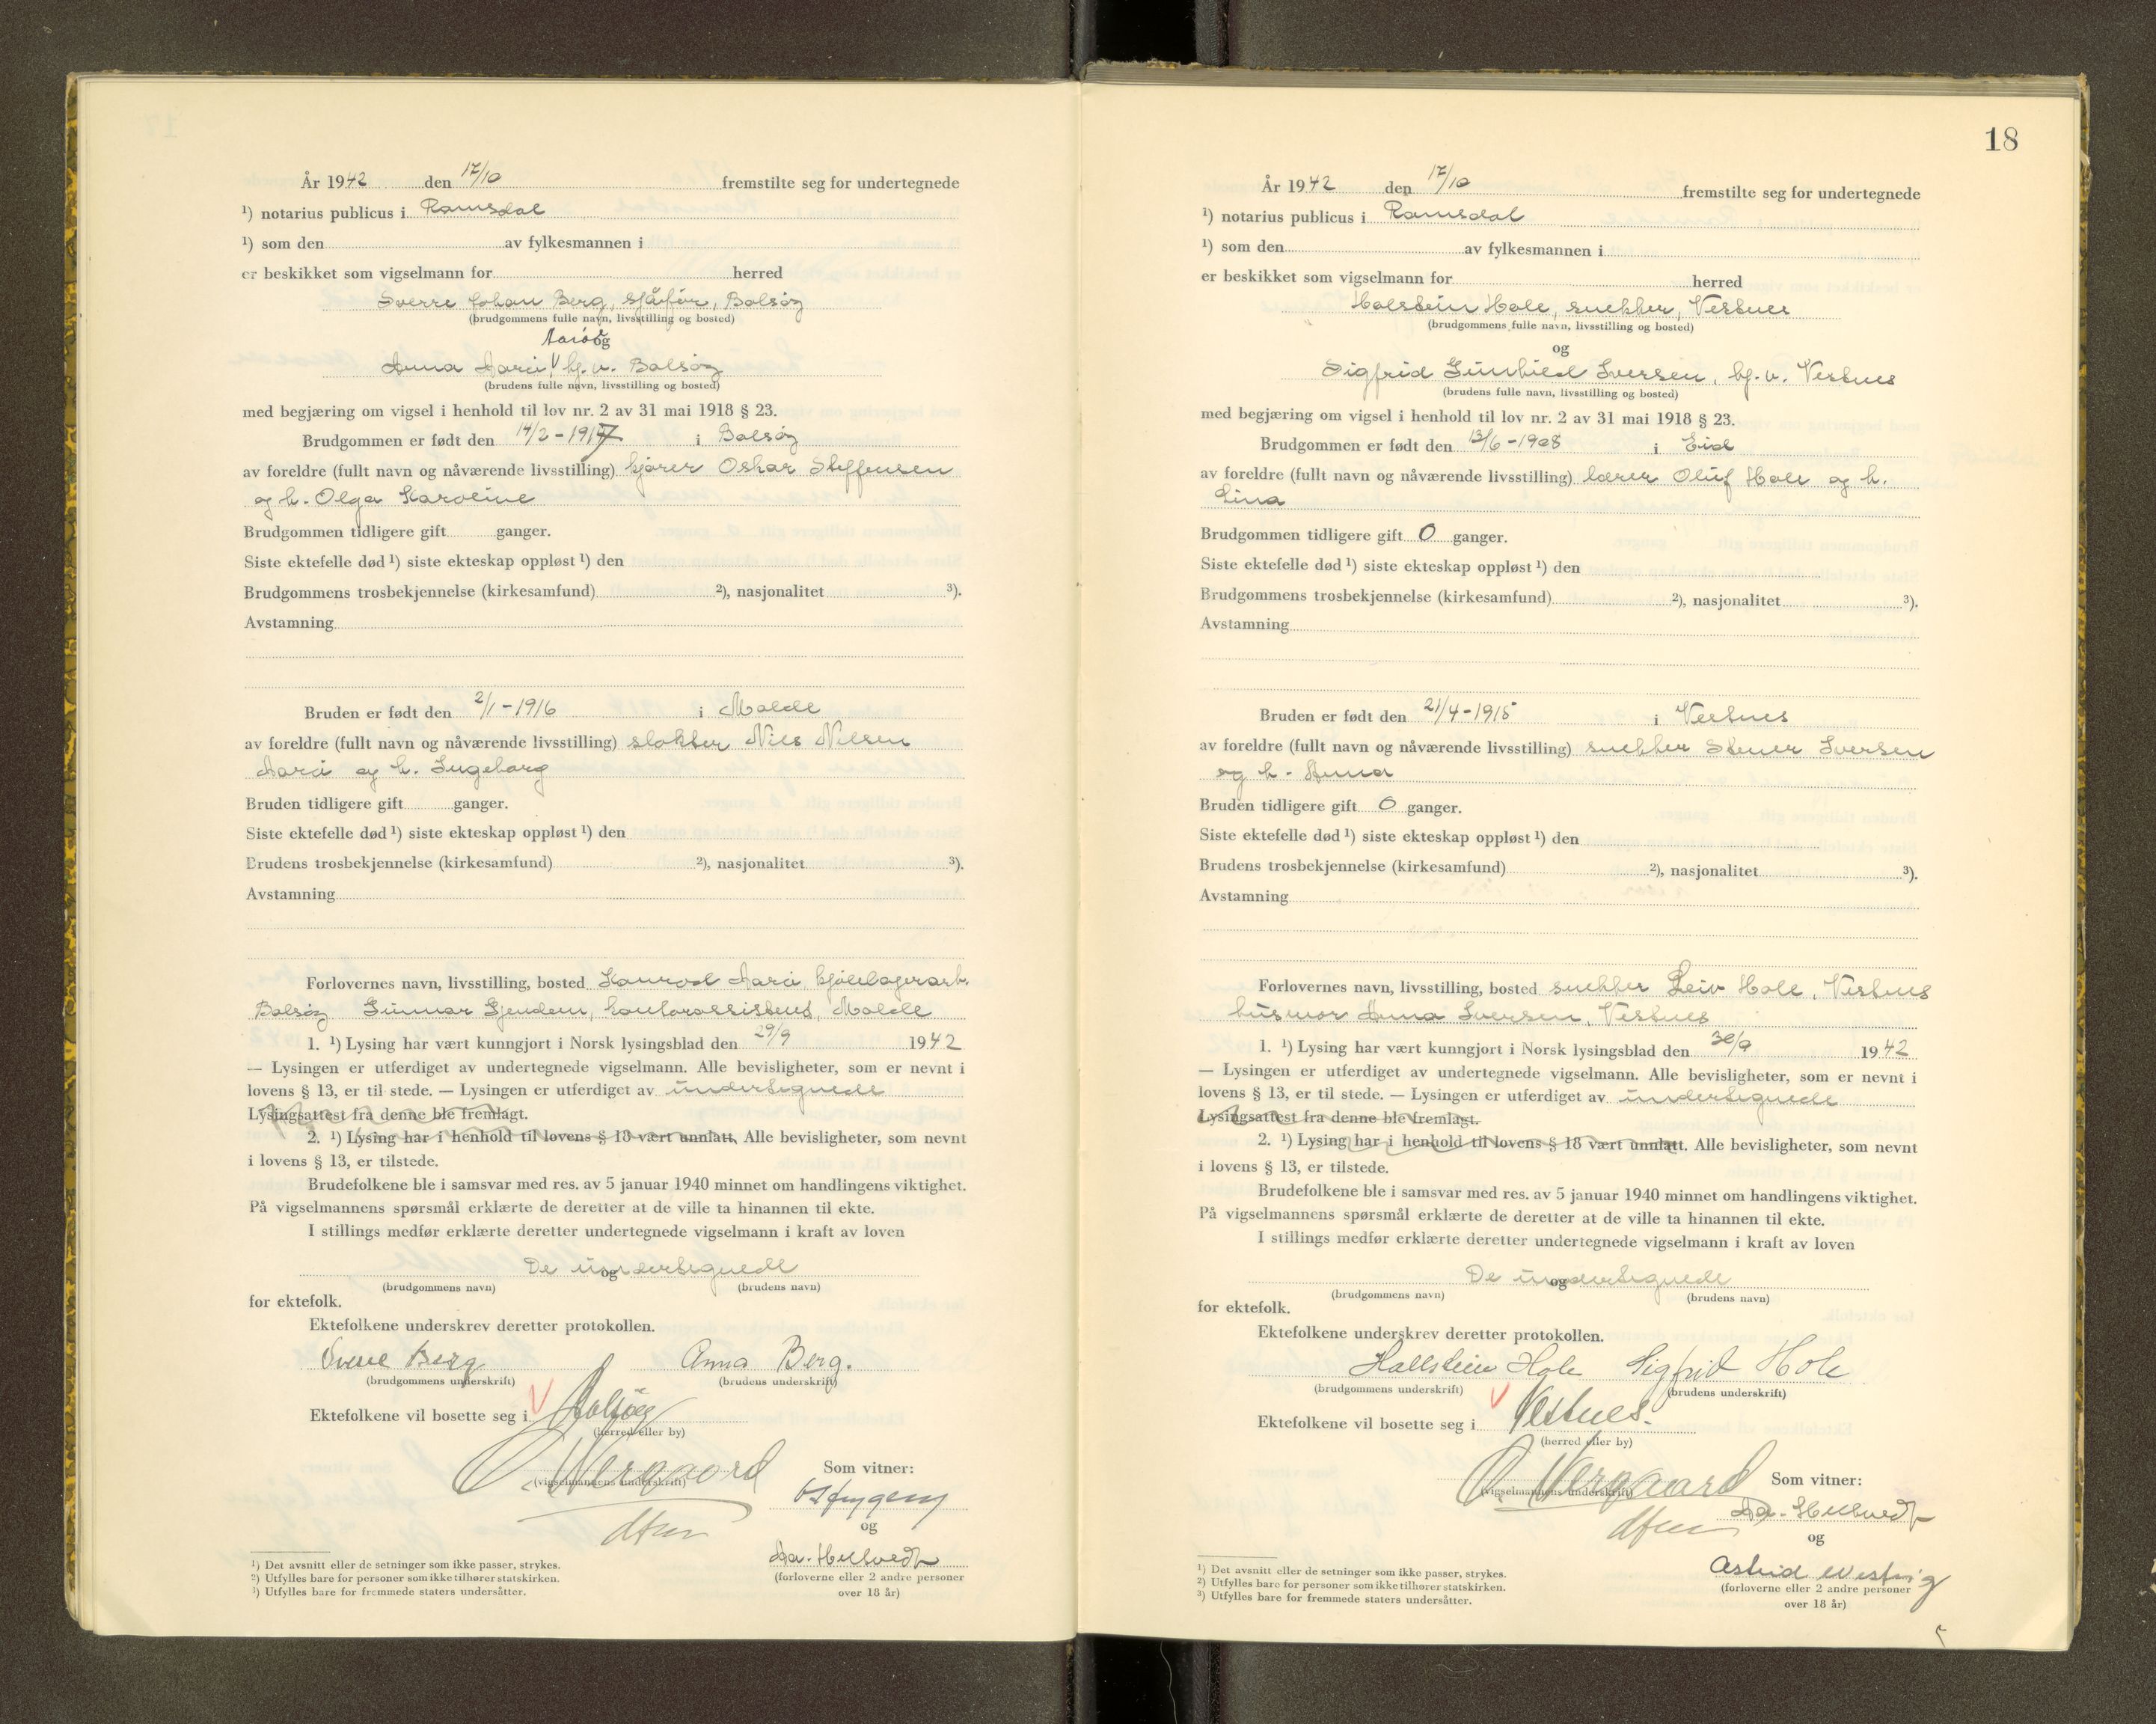 År 1942 den 17/10 fremstilte seg for undertegnede
¹) notarius publicus i Romsdal
¹) som den av fylkesmannen i
er beskikket som vigselmann for herred
Sverre Johan Berg, sjåfør, Bolsøy
(brudgommens fulle navn, livsstilling og bosted)
og
Anna Aarö, hj.v. Bolsøy
(brudens fulle navn, livsstilling og bosted)
med begjæring om vigsel i henhold til lov nr. 2 av 31 mai 1918 § 23.
Brudgommen er født den 14/2-1917 i Bolsøy
av foreldre (fullt navn og nåværende livsstilling) kjører Oskar Steffensen
og h. Olga Karoline
Brudgommen tidligere gift ganger.
Siste ektefelle død ¹) siste ekteskap oppløst ¹) den
Brudgommens trosbekjennelse (kirkesamfund) ²), nasjonalitet ³).
Avstamning
Bruden er født den 2/1-1916 i Molde
av foreldre (fullt navn og nåværende livsstilling) slakter Nils Nilsen
og h. Ingeborg
Bruden tidligere gift ganger.
Siste ektefelle død ¹) siste ekteskap oppløst ¹) den
Brudens trosbekjennelse (kirkesamfund) ²), nasjonalitet ³).
Avstamning
Forlovernes navn, livsstilling, bosted Konrad kjølelagerarb.
Bolsøy Gunnar Gjendem, kontorassistent, Molde
1. ¹) Lysing har vært kunngjort i Norsk lysingsblad den 29/9 1942
— Lysingen er utferdiget av undertegnede vigselmann. Alle bevisligheter, som er nevnt i
lovens § 13, er til stede. — Lysingen er utferdiget av undertegnede
Lysingsattest fra denne ble fremlagt.
2. ¹) Lysing har i henhold til lovens § 18 vært unnlatt. Alle bevisligheter, som nevnt
i lovens § 13, er tilstede.
Brudefolkene ble i samsvar med res. av 5 januar 1940 minnet om handlingens viktighet.
På vigselmannens spørsmål erklærte de deretter at de ville ta hinannen til ekte.
I stillings medfør erklærte deretter undertegnede vigselmann i kraft av loven
De undertegnede
og
(brudgommens navn) (brudens navn)
for ektefolk.
Ektefolkene underskrev deretter protokollen.
Sverre Berg Anna Berg.
(brudgommens underskrift) (brudens underskrift)
Ektefolkene vil bosette seg i Bolsøy
(herred eller by)
(vigselmannens underskrift)
Som vitner:
og
Aa. Hustvedt
(forloverne eller 2 andre personer
over 18 år)
¹) Det avsnitt eller de setninger som ikke passer, strykes.
²) Utfylles bare for personer som ikke tilhører statskirken.
³) Utfylles bare for fremmede staters undersåtter.
18
År 1942 den 17/10 fremstilte seg for undertegnede
¹) notarius publicus i Romsdal
¹) som den av fylkesmannen i
er beskikket som vigselmann for herred
Halstein Hole, snekker, Vestnes
(brudgommens fulle navn, livsstilling og bosted)
og
Sigfrid Gunhild Iversen, hj.v. Vestnes
(brudens fulle navn, livsstilling og bosted)
med begjæring om vigsel i henhold til lov nr. 2 av 31 mai 1918 § 23.
Brudgommen er født den 13/6-1908 i Eid
av foreldre (fullt navn og nåværende livsstilling) lærer Oluf Hole og h.
Lina
Brudgommen tidligere gift 0 ganger.
Siste ektefelle død ¹) siste ekteskap oppløst ¹) den
Brudgommens trosbekjennelse (kirkesamfund) ²), nasjonalitet ³).
Avstamning
Bruden er født den 21/4-1915 i Vestnes
av foreldre (fullt navn og nåværende livsstilling) snekker Stener Iversen
og h. Anna
Bruden tidligere gift 0 ganger.
Siste ektefelle død ¹) siste ekteskap oppløst ¹) den
Brudens trosbekjennelse (kirkesamfund) ²), nasjonalitet ³).
Avstamning
Forlovernes navn, livsstilling, bosted snekker Leiv Hole, Vestnes
husmor Anna Iversen, Vestnes
1. ¹) Lysing har vært kunngjort i Norsk lysingsblad den 30/9 1942
— Lysingen er utferdiget av undertegnede vigselmann. Alle bevisligheter, som er nevnt i
lovens § 13, er til stede. — Lysingen er utferdiget av undertegnede
Lysingsattest fra denne ble fremlagt.
2. ¹) Lysing har i henhold til lovens § 18 vært unnlatt. Alle bevisligheter, som nevnt
i lovens § 13, er tilstede.
Brudefolkene ble i samsvar med res. av 5 januar 1940 minnet om handlingens viktighet.
På vigselmannens spørsmål erklærte de deretter at de ville ta hinannen til ekte.
I stillings medfør erklærte deretter undertegnede vigselmann i kraft av loven
De undertegnede
og
(brudgommens navn) (brudens navn)
for ektefolk.
Ektefolkene underskrev deretter protokollen.
Hallstein Hole Sigfrid Hole
(brudgommens underskrift) (brudens underskrift)
Ektefolkene vil bosette seg i Vestnes.
(herred eller by)
(vigselmannens underskrift)
Som vitner:
Aa. Hustvedt
og
Astrid
(forloverne eller 2 andre personer
over 18 år)
¹) Det avsnitt eller de setninger som ikke passer, strykes.
²) Utfylles bare for personer som ikke tilhører statskirken.
³) Utfylles bare for fremmede staters undersåtter.